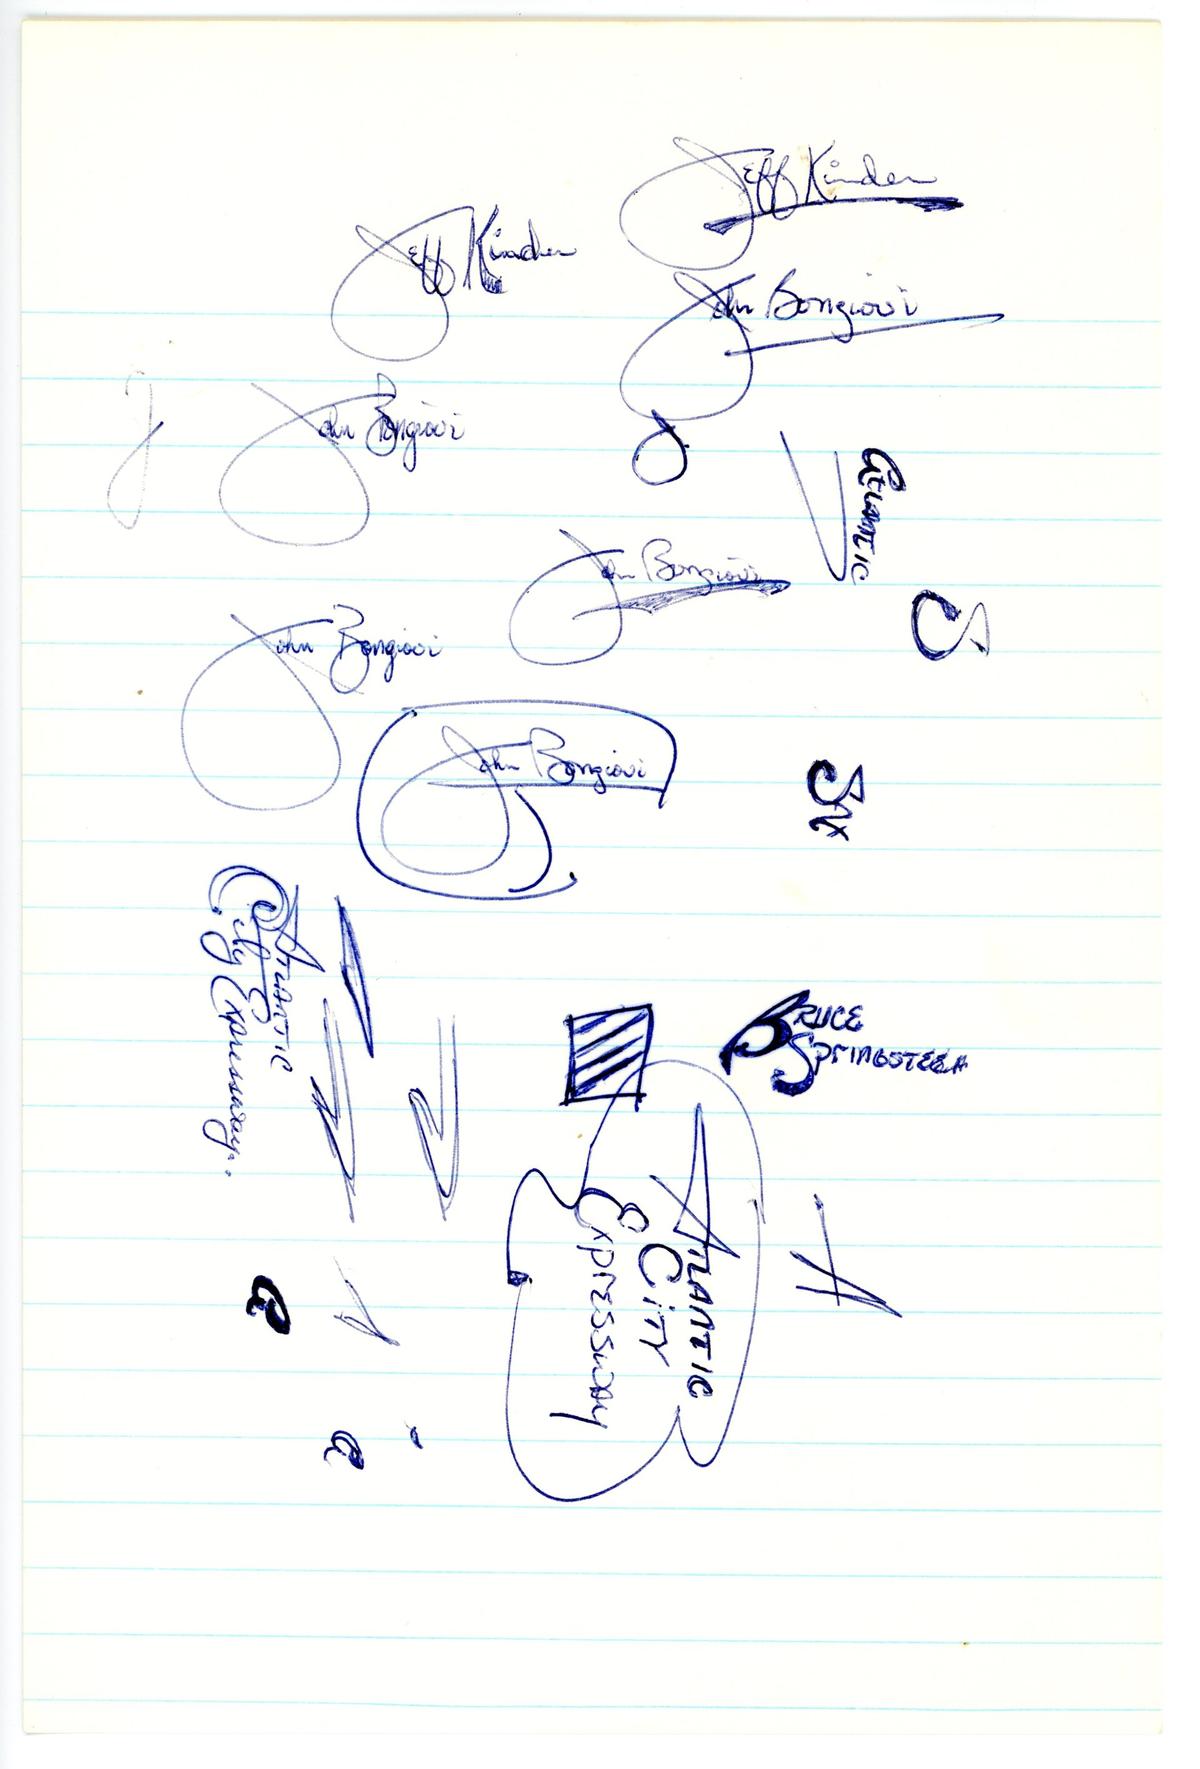 Jeff Kinder
Jeff Kinder
John Bongiovi
J
John Bongiovi
J
Atlantic
John Bongiovi
S
John Bongiovi
John Bongiovi
Sax
Atlantic
City Expressway.
Bruce
Springsteen
Atlantic
City
Expressway
A
A